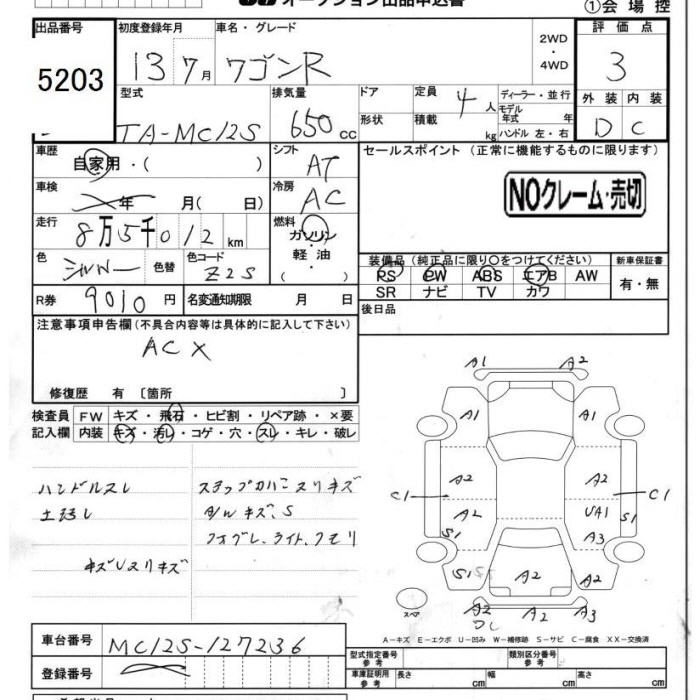 オークション出品申込書
①会場控
出品番号 初度登録年月 車名・グレード 2WD・4WD 評価点
5203 13 7月 ワゴンR 3
型式 排気量 ドア 定員 4人 ディーラー・並行 外装 内装
モデル年式 年
TA-MC12S 650cc 形状 積載 kg ハンドル 左・右 D C
車歴 自家用・( ) シフト AT セールスポイント (正常に機能するものに限ります)
車検 年 月( 日) 冷房 AC NOクレーム・売切
走行 8万5千012km 燃料 ガソリン・軽油・( )
色 シルバー 色替 色コード Z2S 装備品 (純正品に限り○をつけてください) 新車保証書
PS PW ABS エアB AW 有・無
SR ナビ TV カワ
R券 9010円 名変通知期限 月 日 後日品
注意事項申告欄 (不具合内容等は具体的に記入して下さい)
AC X
修復歴 有 〔箇所 〕
検査員 FW キズ・飛石・ヒビ割・リペア跡・×要
記入欄 内装 キズ・汚レ・コゲ・穴・スレ・キレ・破レ
ハンドルスレ
キズUスリキズ
A1 A2
A1 A1
A2 A2
C1 C1
A2 UA1 S1
S1 A3
S1 A2 A2
スペア A2 A2 A3
A－キズ E－エクボ U－凹み W－補修跡 S－サビ C－腐食 XX－交換済
車台番号 MC12S-127236 型式指定番号 参考 類別区分番号 参考
登録番号 車庫証明用 参考 長さ cm 幅 cm 高さ cm